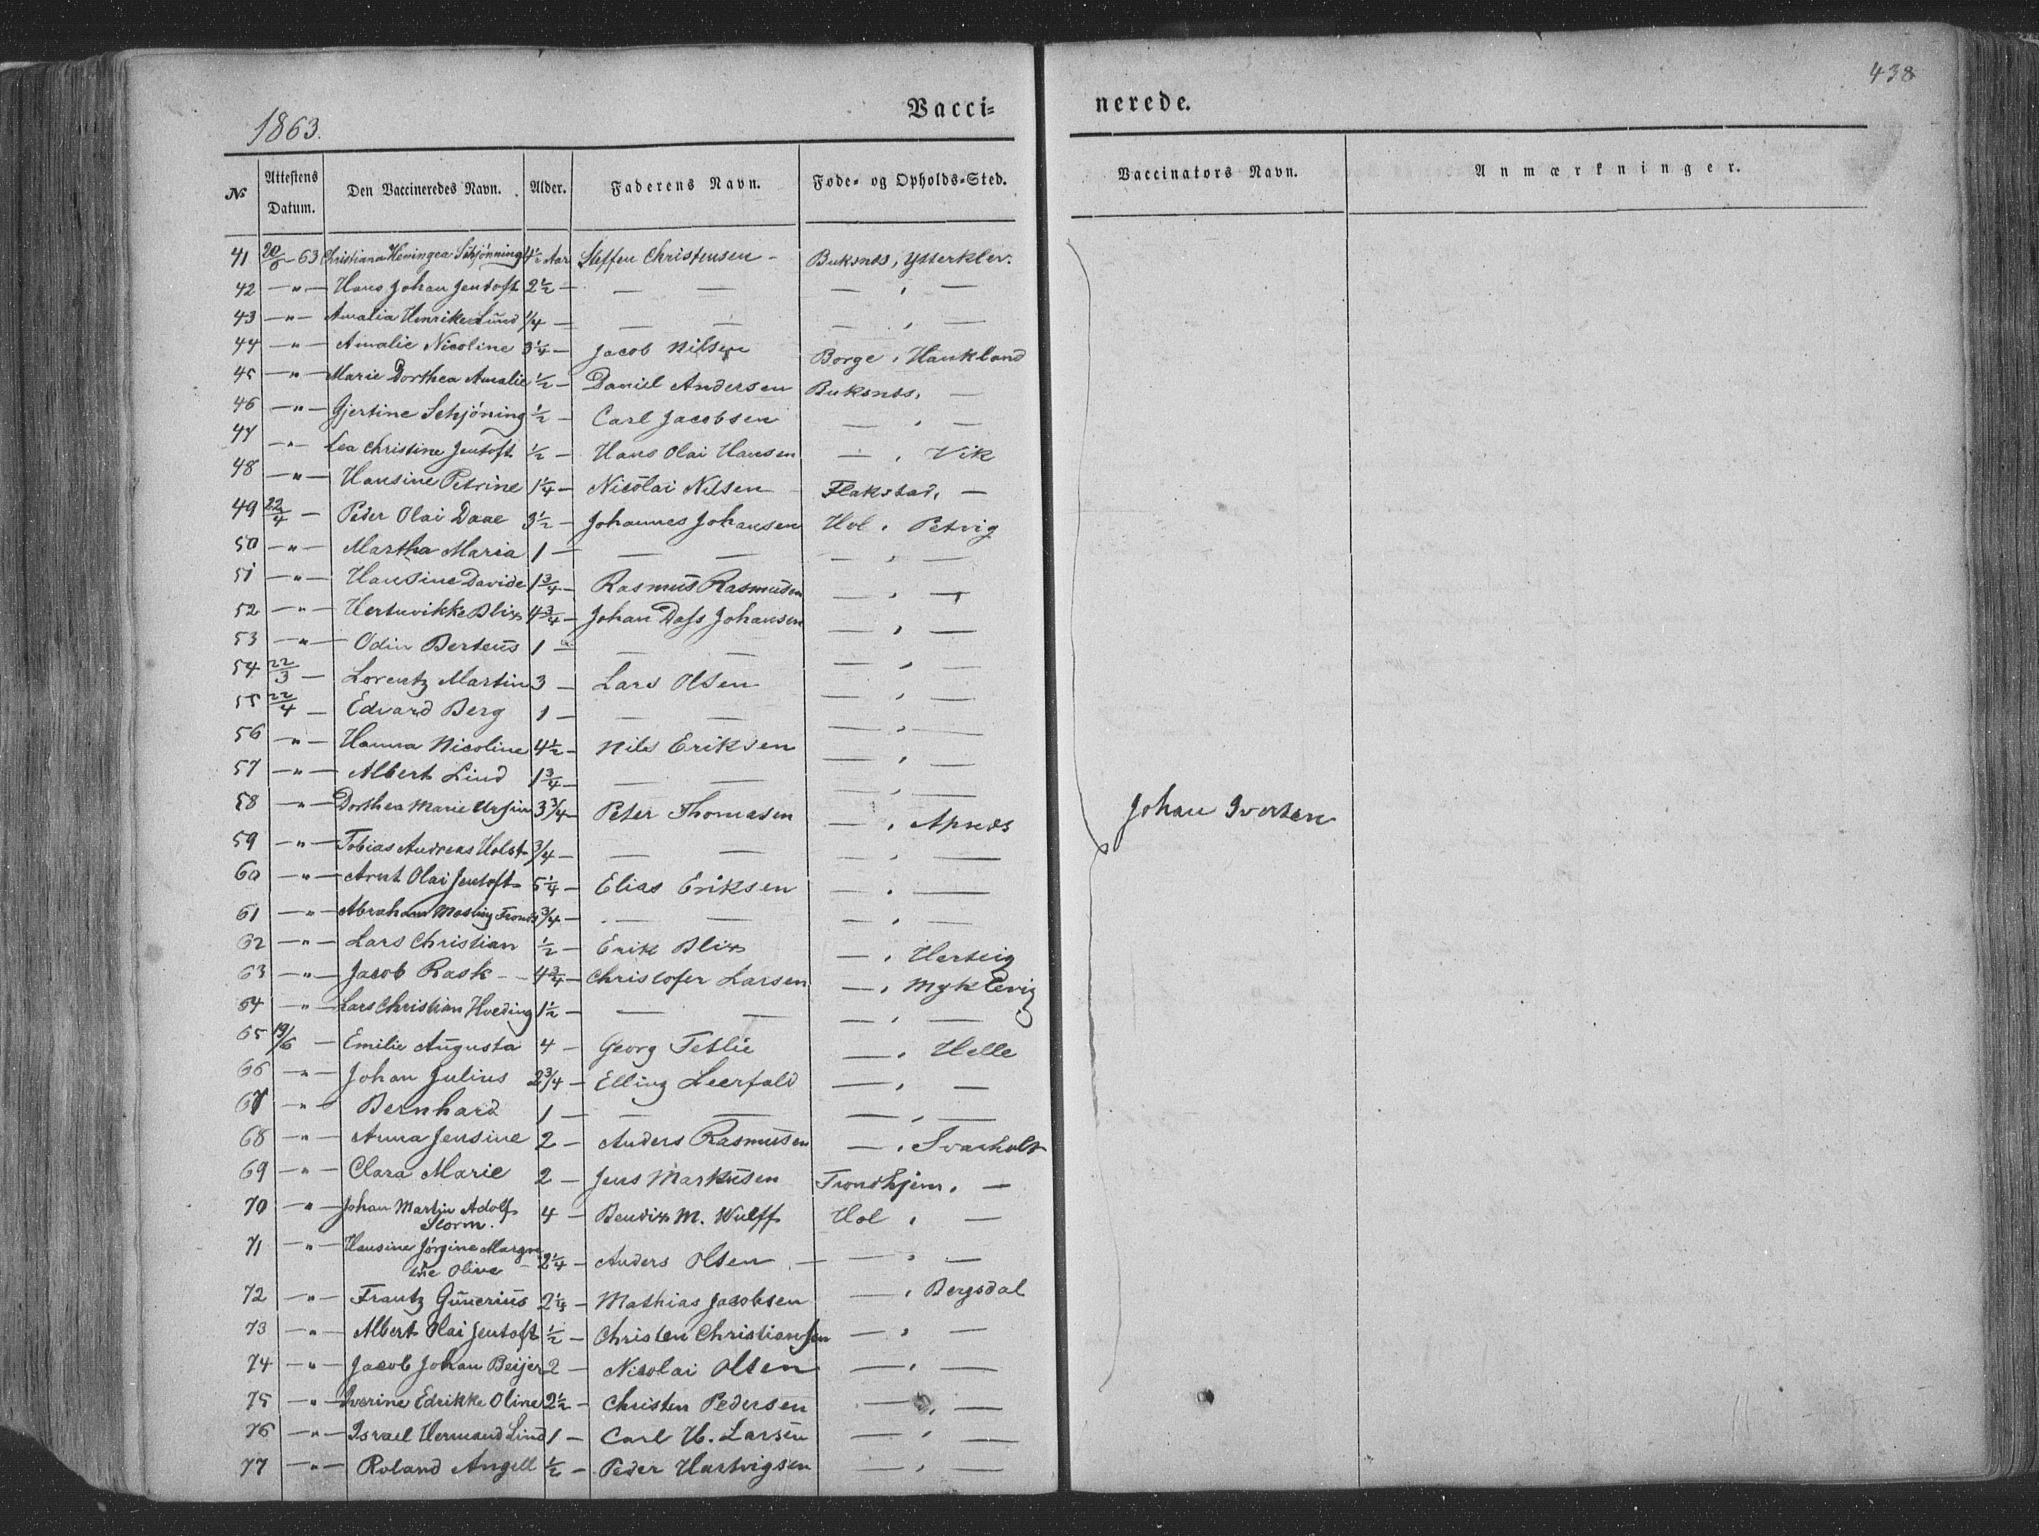 438
1863.
Vacci- nerede.
№ Attestens Datum. Den Vaccineredes Navn. Alder. Faderens Navn. Føde- og Opholds-Sted. Vaccinators Navn. Anmærkninger.
41 20/6 - 63 Christiana Heningea Schjönning 4½ Aar Steffen Christensen - Buksnes, Ytterklev.
42 — " — Hans Johan Jentoft 2½ — — — — , —
43 — " — Amalia Henrike Lund 1/4 — — — — , —
44 — " — Amalie Nicoline 3¼ — Jacob Nilsen Borge, Haukland
45 — " — Marie Dorthea Amalie ½ — Daniel Andersen Buksnes, —
46 — " — Gjertine Schjöning ½ — Carl Jacobsen — , —
47 — " Lea Christine Jentoft ½ — Hans Olai Hansen — , Vik
48 — " — Hansine Petrine 1¼ — Nicolai Nilsen Flakstad, —
49 22/4 — Peder Olai Daae 3½ — Johannes Johansen Hol, Petvig
50 — " — Martha Maria 1 — — — — , —
51 — " — Hansine Davide 1¾ — Rasmus Rasmusen — , —
52 — " — Hertuvikke Blix 4¾ — Johan Dass Johansen — , —
53 — " — Odin Berteus 1 — — — — , —
54 22/3 — Lorentz Martin 3 — Lars Olsen — , —
55 22/4 — Edvard Berg 1 — — — — , —
56 — " — Hanna Nicoline 4½ — Nils Eriksen — , —
57 — " — Albert Lind 1¾ — — — — , —
58 — " — Dorthea Marie Ursin 3¾ — Peter Thomesen — , Apnes
Johan Iversen
59 — " — Tobias Andreas Holst ¾ — — — — , —
60 — " — Arnt Olai Jentoft 5¼ — Elias Eriksen — , —
61 — " — Abraham ¾ — — — — , —
62 — " — Lars Christian ½ — Erik Blix — , Hertvig
63 — " — Jacob Rask — 4¾ — Christofer Larsen — , Myklevig
64 — " — Lars Christian Hveding 1½ — — — — , —
65 19/6 — Emilie Augusta 4 — Georg Tetlie — , Helle
66 — " — Johan Julius 2¾ — Elling Leerfald — , —
67 — " — Bernhard 1 — — — — , —
68 — " — Anna Jensine 2 — Anders Rasmusen — , Svarholt
69 — " — Clara Marie 2 — Jens Markusen Trondhjem, —
70 — " — Johan Martin Adolf Storm. 4 — Bendix M. Wulff Hol , —
71 — " — Hansine Jörgine Margrethe Olive 2¼ — Anders Olsen — — , —
72 — " — Frantz Gunerius 2¼ — Mathias Jacobsen — , Bergsdal
73 — " — Albert Olai Jentoft ½ — Christen Christiansen — , —
74 — " — Jacob Johan Beijer 2 — Nicolai Olsen — , —
75 — " — Iverine Edrikke Oline 2½ — Christen Pedersen — , —
76 — " — Israel Hermand Lind 1 — Carl H. Larsen — , —
77 — " — Roland Angell ½ — Peder Hartvigsen — , —